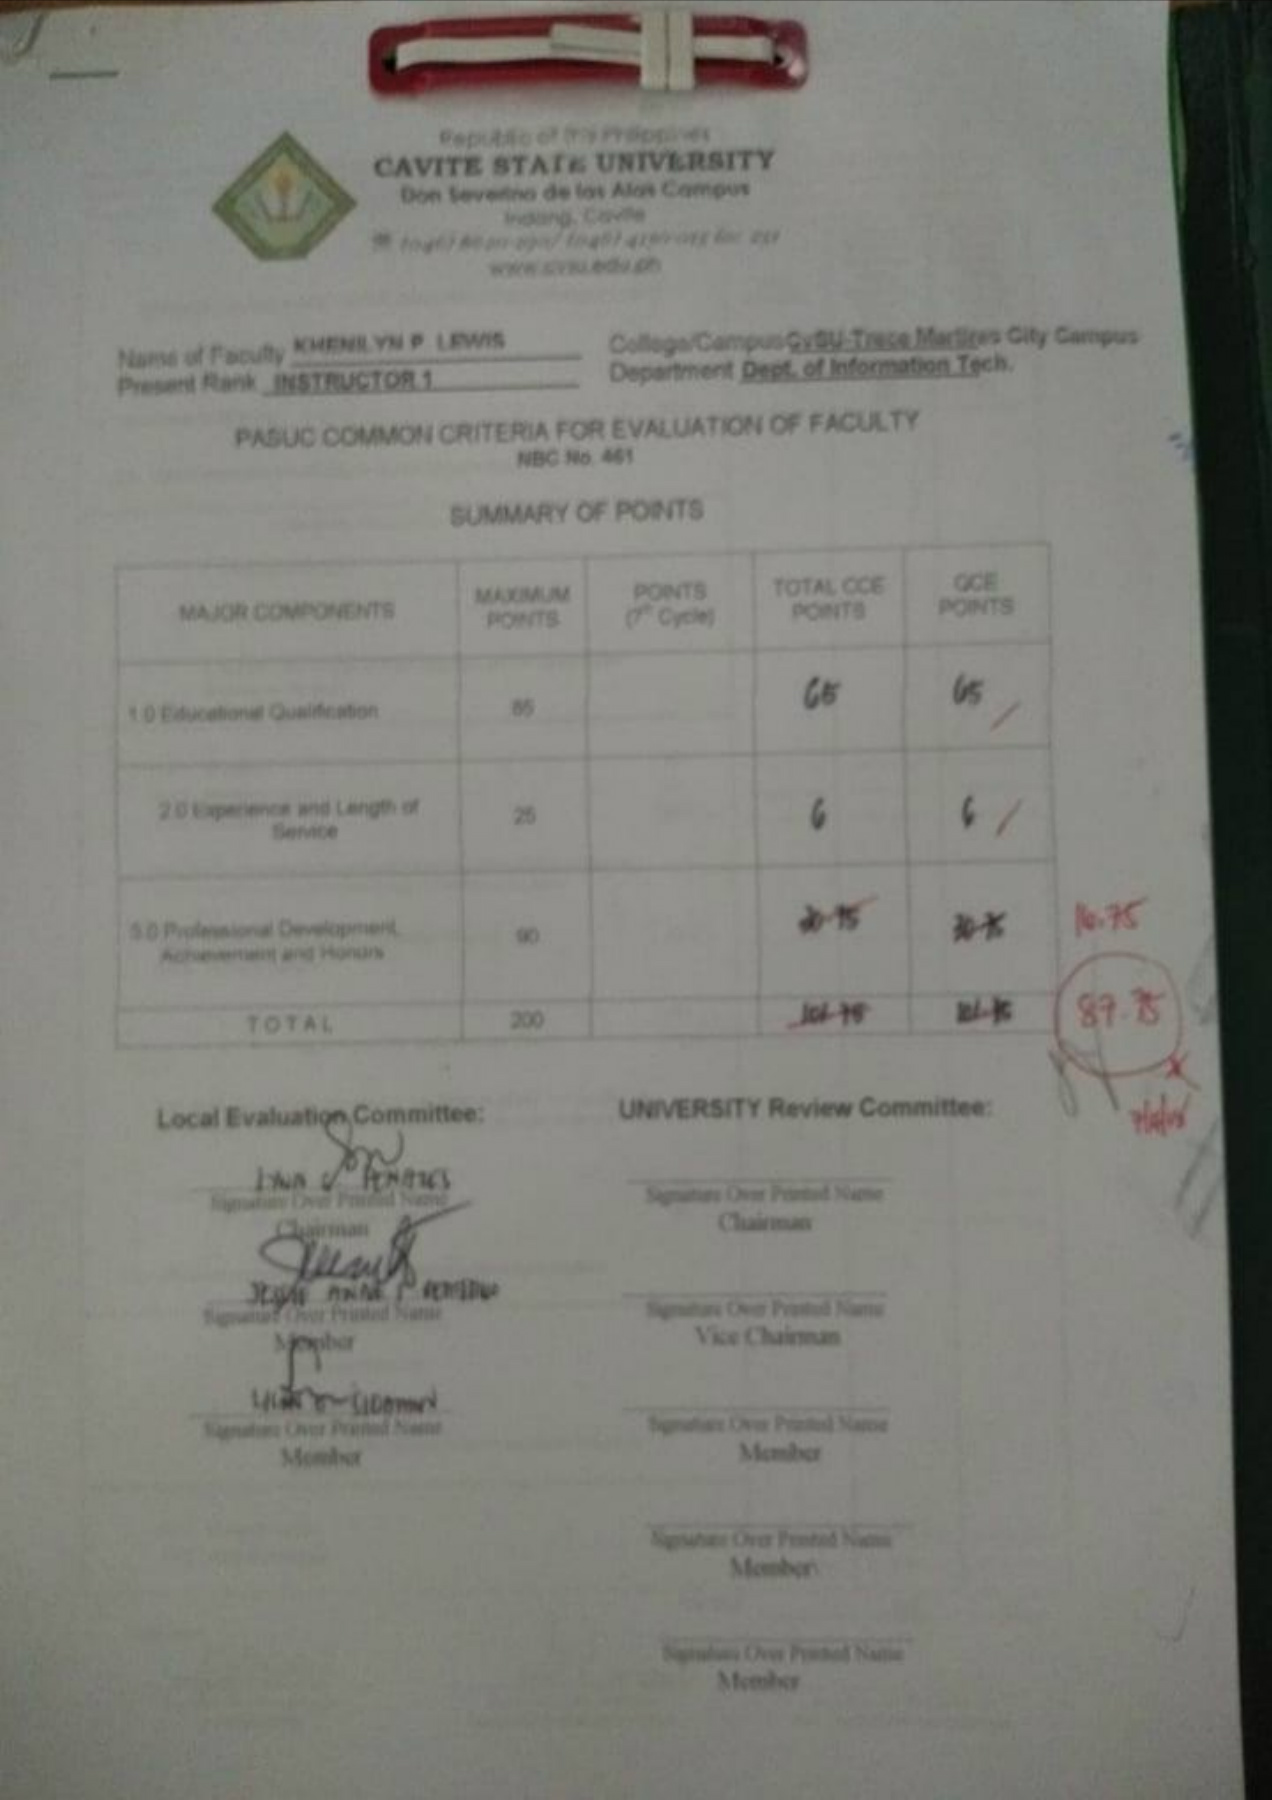 Republic of the Philippines
CAVITE STATE UNIVERSITY
Don Severino de las Alas Campus
Indang, Cavite
www.cvsu.edu.ph
Name of Faculty KHENILYN P. LEWIS
College/Campus CvSU-Trece Martires City Campus
Present Rank INSTRUCTOR 1
Department Dept. of Information Tech.
PASUC COMMON CRITERIA FOR EVALUATION OF FACULTY
NBC No. 461
SUMMARY OF POINTS
MAJOR COMPONENTS
MAXIMUM POINTS
POINTS (7th Cycle)
TOTAL CCE POINTS
QCE POINTS
1.0 Educational Qualification 85 65 65
2.0 Experience and Length of Service 25 6 6
3.0 Professional Development, Achievement and Honors 90 30.75 30.75 16.75
TOTAL 200 101.75 101.75 87.75
Local Evaluation Committee:
UNIVERSITY Review Committee:
Signature Over Printed Name
Chairman
Signature Over Printed Name
Chairman
Signature Over Printed Name
Member
Signature Over Printed Name
Vice Chairman
Signature Over Printed Name
Member
Signature Over Printed Name
Member
Signature Over Printed Name
Member
Signature Over Printed Name
Member